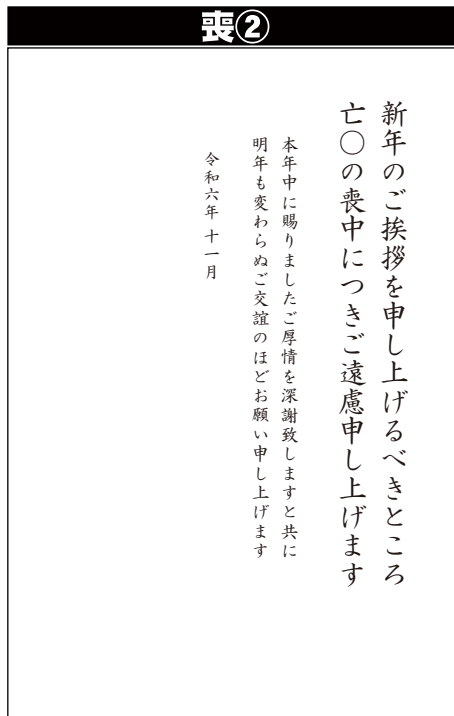 喪②
新年のご挨拶を申し上げるべきところ
亡○の喪中につきご遠慮申し上げます
本年中に賜りましたご厚情を深謝致しますと共に
明年も変わらぬご交誼のほどお願い申し上げます
令和六年 十一月